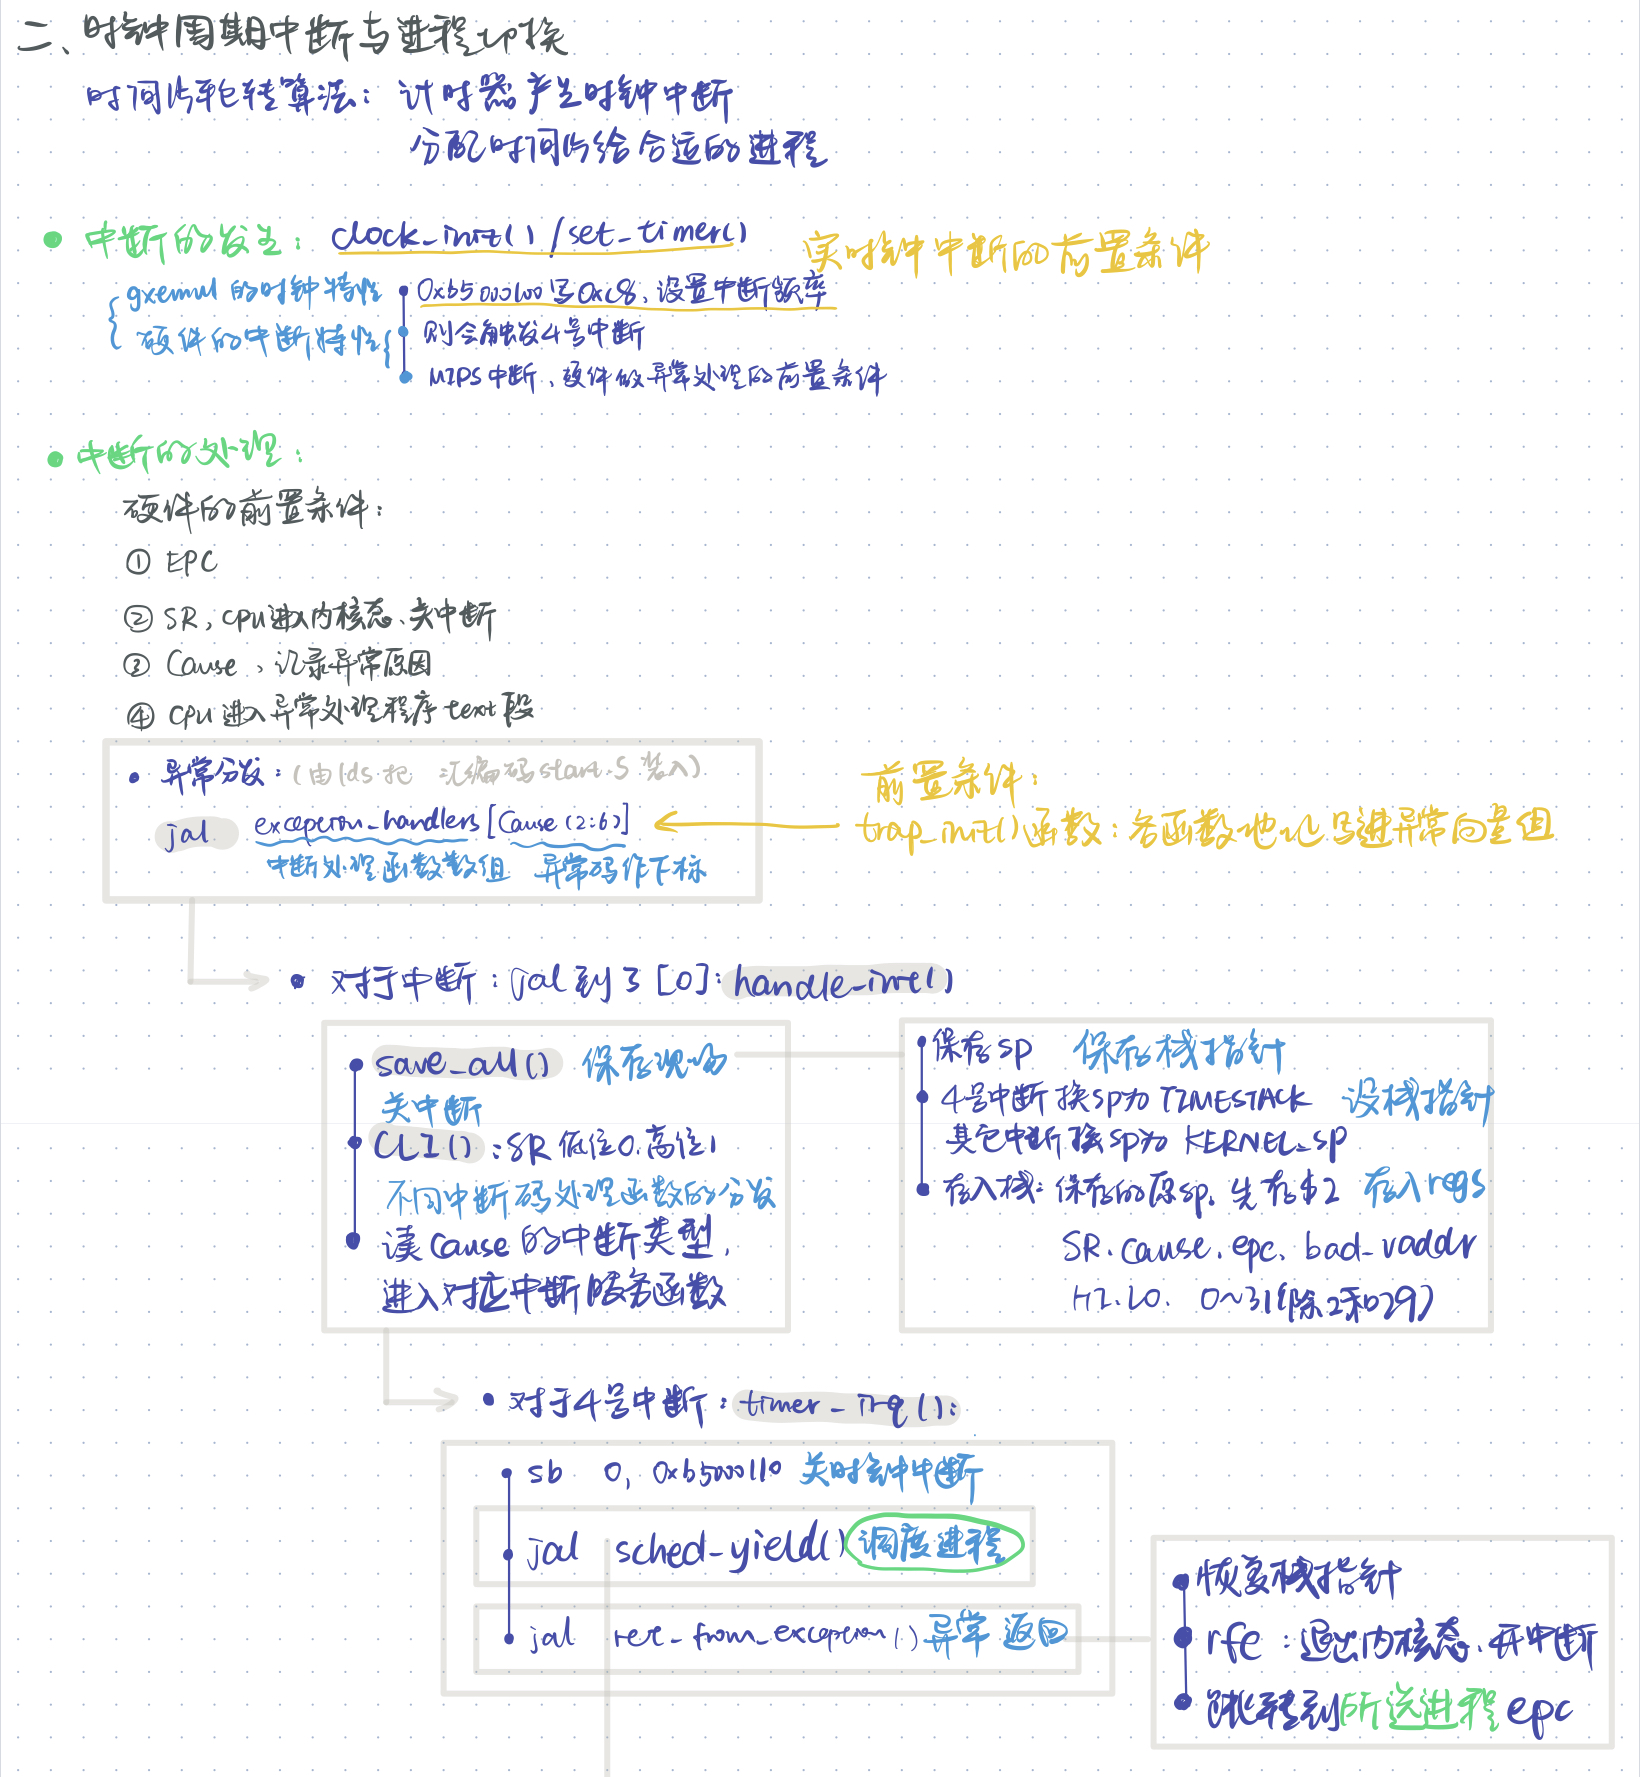 二、时钟周期中断与进程切换
时间片轮转算法：计时器产生时钟中断
分配时间片给合适的进程
中断的发生：clock_init()/set_timer()
实时钟中断的前置条件
gxemul的时钟特性
硬件的中断特性
0xb5000100写0xc8、设置中断频率
则会触发4号中断
MIPS中断、硬件做异常处理的前置条件
中断的处理：
硬件的前置条件：
① EPC
② SR, CPU进入内核态、关中断
③ Cause、记录异常原因
④ CPU进入异常处理程序text段
异常分发：(由lds把 汇编码start.S装入)
jal exception_handlers[Cause(2:6)]
中断处理函数数组 异常码作下标
前置条件：
trap_init()函数：各函数地址写进异常向量组
对于中断：jal到了[0]：handle_int()
save_all() 保存现场
关中断
CLI()：SR低位0.高位1
不同中断码处理函数的分发
读Cause的中断类型,
进入对应中断服务函数
保存sp 保存栈指针
4号中断换sp为TIMESTACK 设栈指针
其它中断换sp为KERNEL_SP
存入栈：保存的原sp、先存$2 存入regs
SR.cause.epc.bad_vaddr
HI.LO. 0~31(除2和29)
对于4号中断：timer_irq():
sb 0, 0xb5000110 关时钟中断
jal sched_yield() 调度进程
jal ret_from_exception() 异常返回
恢复栈指针
rfe：退出内核态、开中断
跳转到所选进程epc